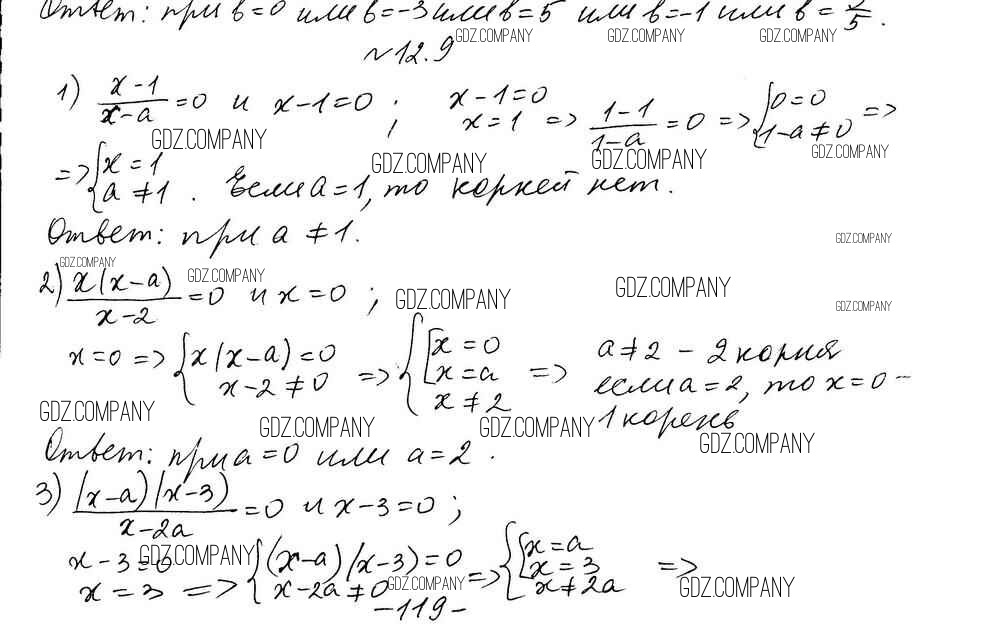 Ответ: при b=0 или b=-3 или b=5 или b=-1 или b= /5.
GDZ.COMPANY GDZ.COMPANY GDZ.COMPANY
№12.9
1) (x-1)/(x-a)=0 и x-1=0; x-1=0 x=1 => (1-1)/(1-a)=0 => {0=0 1-a≠0 =>
GDZ.COMPANY GDZ.COMPANY GDZ.COMPANY GDZ.COMPANY
=> {x=1 a≠1. Если a=1, то корней нет.
Ответ: при a≠1.
GDZ.COMPANY
GDZ.COMPANY GDZ.COMPANY
2) x(x-a)/(x-2)=0 и x=0;
GDZ.COMPANY GDZ.COMPANY GDZ.COMPANY
x=0 => {x(x-a)=0 x-2≠0 => {[x=0 x=a x≠2 => a≠2 - 2 корня
если a=2, то x=0 -
1 корень
GDZ.COMPANY GDZ.COMPANY GDZ.COMPANY GDZ.COMPANY
Ответ: при a=0 или a=2.
3) (x-a)(x-3)/(x-2a)=0 и x-3=0;
x-3=0 x=3 => {(x-a)(x-3)=0 x-2a≠0 => {[x=a x=3 x≠2a =>
GDZ.COMPANY GDZ.COMPANY GDZ.COMPANY
-119-